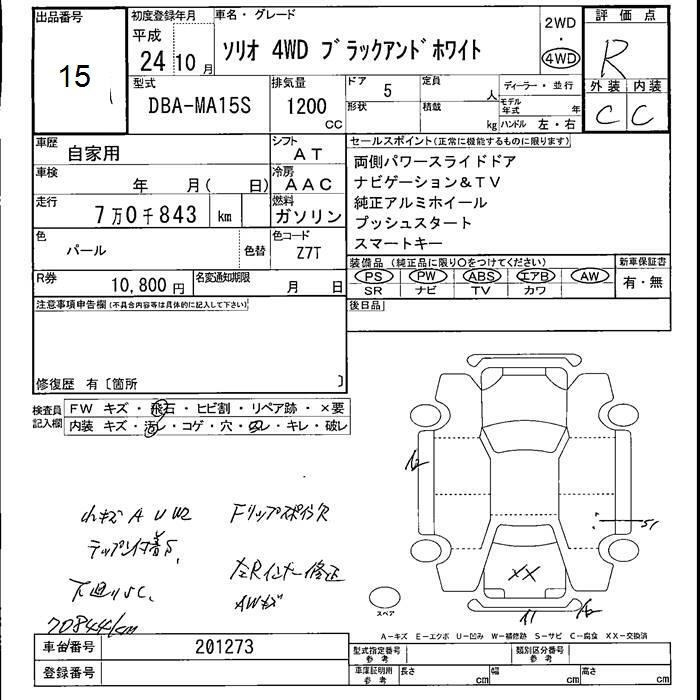 出品番号
15
初度登録年月
平成
24 10 月
車名・グレード
ソリオ 4WD ブラックアンドホワイト
2WD
・
4WD
評価点
R
外装 内装
C C
型式
DBA-MA15S
排気量
1200
CC
ドア 5
形状
定員
人
積載
kg
ディーラー・並行
モデル年式 年
ハンドル 左・右
車歴
自家用
シフト
AT
車検
年 月( 日)
冷房
AAC
走行
7万0千843 km
燃料
ガソリン
色
パール
色替
色コード
Z7T
R券
10,800 円
名変通知期限
月 日
セールスポイント(正常に機能するものに限ります)
両側パワースライドドア
ナビゲーション&TV
純正アルミホイール
プッシュスタート
スマートキー
装備品 (純正品に限り○をつけてください)
PS PW ABS エアB AW
SR ナビ TV カワ
新車保証書
有・無
後日品
注意事項申告欄(不具合内容等は具体的に記入して下さい)
修復歴 有〔箇所 〕
検査員記入欄
FW キズ・飛石・ヒビ割・リペア跡・×要
内装 キズ・汚レ・コゲ・穴・スレ・キレ・破レ
小キズ A U W2
Fリップスポイ欠
テップ付着S,
左Rインナー修正
下廻りSC,
AWキズ
70844km
XX
S1
スペア
A-キズ E-エクボ U-凹み W-補修跡 S-サビ C-腐食 XX-交換済
車台番号
201273
登録番号
型式指定番号
参考
類別区分番号
参考
車庫証明用
参考
長さ cm 幅 cm 高さ cm